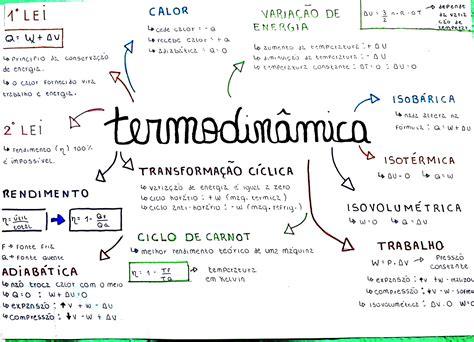 1ª LEI
Q = W + ΔU
↳ princípio da conservação
de energia.
↳ o calor fornecido vira
trabalho e energia.
CALOR
↳ cede calor: -Q
↳ recebe calor: +Q
↳ adiabática: Q=0
VARIAÇÃO DE
ENERGIA
↳ aumento da temperatura: +ΔU
↳ diminuição da temperatura: -ΔU
↳ temperatura constante: ΔT=0 ΔU=0
ΔU = 3/2 n·R·ΔT
depende
da
de
termodinâmica
2ª LEI
↳ rendimento (η) 100%
é impossível.
RENDIMENTO
η = útil/total
η = 1 - QF/QQ
F → fonte fria
Q → fonte quente
ADIABÁTICA
↳ não troca calor com o meio
↳ Q=0 W + ΔU=0
↳ expansão: ↑V +W -ΔU
↳ compressão: ↓V -W +ΔU
TRANSFORMAÇÃO CÍCLICA
↳ variação de energia é igual a zero
↳ ciclo horário: +W (máq. térmica)
↳ ciclo anti-horário: -W (máq. refrig.)
CICLO DE CARNOT
↳ melhor rendimento teórico de uma máquina
η = 1 - TF/TQ
temperatura
em Kelvin
ISOBÁRICA
↳ nada altera na
fórmula: Q = W + ΔU
ISOTÉRMICA
↳ ΔU=0 Q=W
ISOVOLUMÉTRICA
↳ W=0 Q=ΔU
TRABALHO
W=P.ΔV → Pressão
constante
↳ expansão: ↑V +W
↳ compressão: ↓V -W
↳ isovolumétrica: ΔV=0 W=0